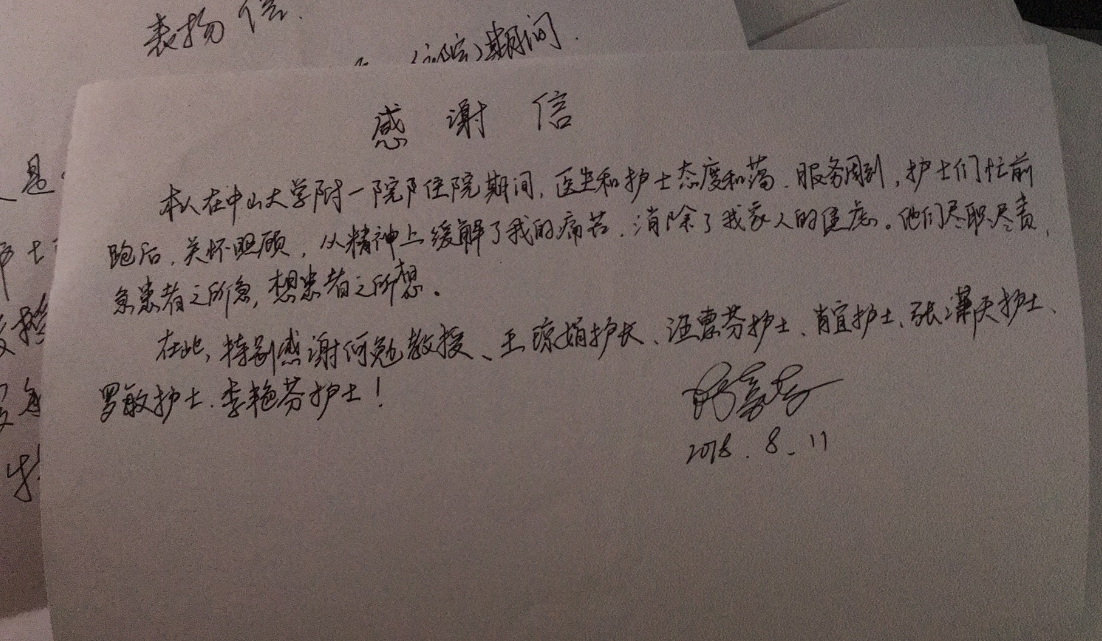 表扬信.
期间.
感谢信
本人在中山大学附一院住院期间,医生和护士态度和蔼、服务周到,护士们忙前
跑后,关怀照顾,从精神上缓解了我的痛苦,消除了我家人的焦虑。他们尽职尽责,
急患者之所急,想患者之所想。
在此,特别感谢何勉教授、王琼娟护长、汪惠芬护士、肖宜护士、张天护士、
罗敏护士、李艳芬护士!
2018.8.11